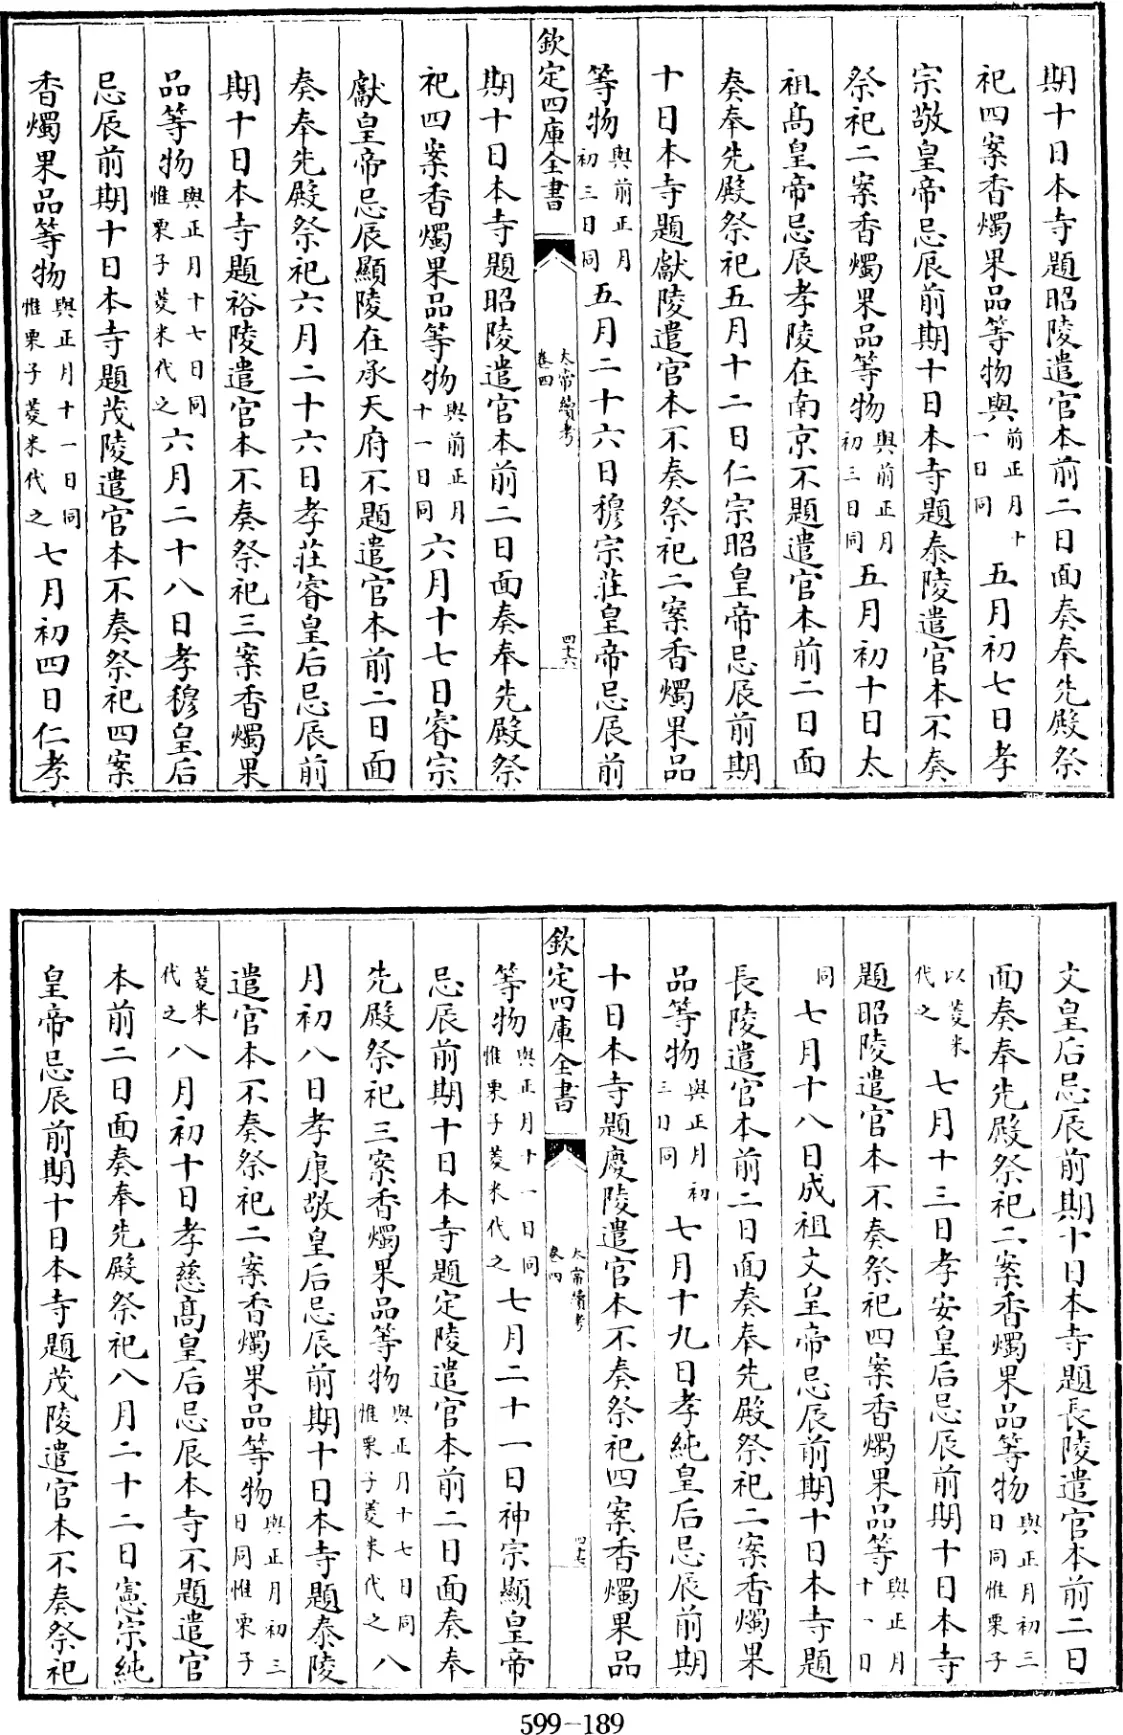 期十日本寺題昭陵遣官本前二日面奏奉先殿祭
祀四案香燭果品等物與前正月十一日同五月初七日孝
宗敬皇帝忌辰前期十日本寺題泰陵遣官本不奏
祭祀二案香燭果品等物與前正月初三日同五月初十日太
祖高皇帝忌辰孝陵在南京不題遣官本前二日面
奏奉先殿祭祀五月十二日仁宗昭皇帝忌辰前期
十日本寺題獻陵遣官本不奏祭祀二案香燭果品
等物與前正月初三日同五月二十六日穆宗莊皇帝忌辰前
欽定四庫全書
太常續考
卷四
四十六
期十日本寺題昭陵遣官本前二日面奏奉先殿祭
祀四案香燭果品等物與前正月十一日同六月十七日睿宗
獻皇帝忌辰顯陵在承天府不題遣官本前二日面
奏奉先殿祭祀六月二十六日孝莊睿皇后忌辰前
期十日本寺題裕陵遣官本不奏祭祀三案香燭果
品等物與正月十七日同惟栗子菱米代之六月二十八日孝穆皇后
忌辰前期十日本寺題茂陵遣官本不奏祭祀四案
香燭果品等物與正月十一日同惟栗子菱米代之七月初四日仁孝
文皇后忌辰前期十日本寺題長陵遣官本前二日
面奏奉先殿祭祀二案香燭果品等物與正月初三日同惟栗子
以菱米代之七月十三日孝安皇后忌辰前期十日本寺
題昭陵遣官本不奏祭祀四案香燭果品等與正月十一日
同七月十八日成祖文皇帝忌辰前期十日本寺題
長陵遣官本前二日面奏奉先殿祭祀二案香燭果
品等物與正月初三日同七月十九日孝純皇后忌辰前期
十日本寺題慶陵遣官本不奏祭祀四案香燭果品
欽定四庫全書
太常續考
卷四
四十七
等物與正月十一日同惟栗子菱米代之七月二十一日神宗顯皇帝
忌辰前期十日本寺題定陵遣官本前二日面奏奉
先殿祭祀三案香燭果品等物與正月十七日同惟栗子菱米代之八
月初八日孝康敬皇后忌辰前期十日本寺題泰陵
遣官本不奏祭祀二案香燭果品等物與正月初三日同惟栗子
菱米代之八月初十日孝慈高皇后忌辰本寺不題遣官
本前二日面奏奉先殿祭祀八月二十二日憲宗純
皇帝忌辰前期十日本寺題茂陵遣官本不奏祭祀
599-189